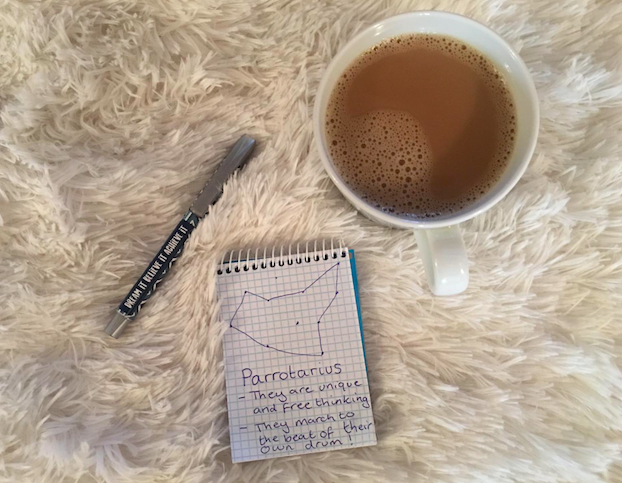 DREAM IT BELIEVE IT ACHIEVE IT
Parrotarius
- They are unique
and Free thinking
- They march to
the beat of their
own drum!